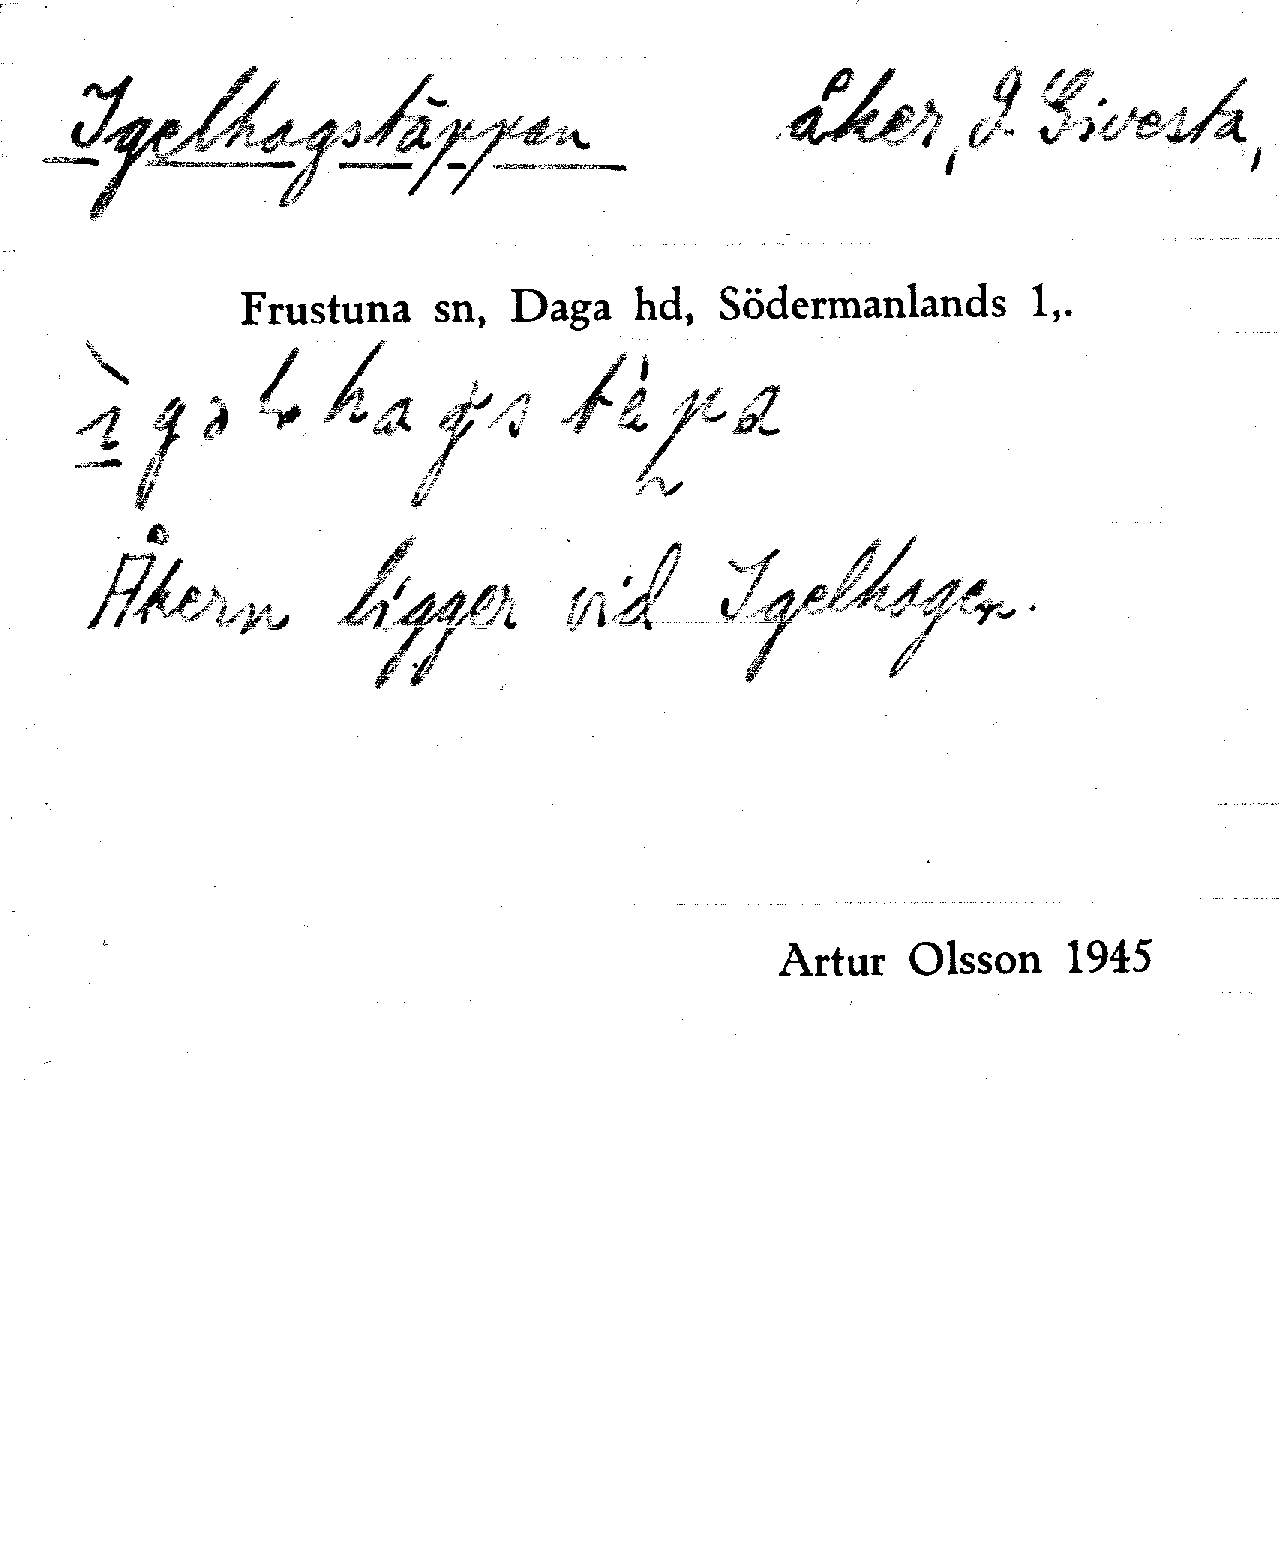 Igelhagstäppen åker, Ö. Sivesta,
Frustuna sn, Daga hd, Södermanlands l,.
Åkern ligger vid Igelhagen.
Artur Olsson 1945